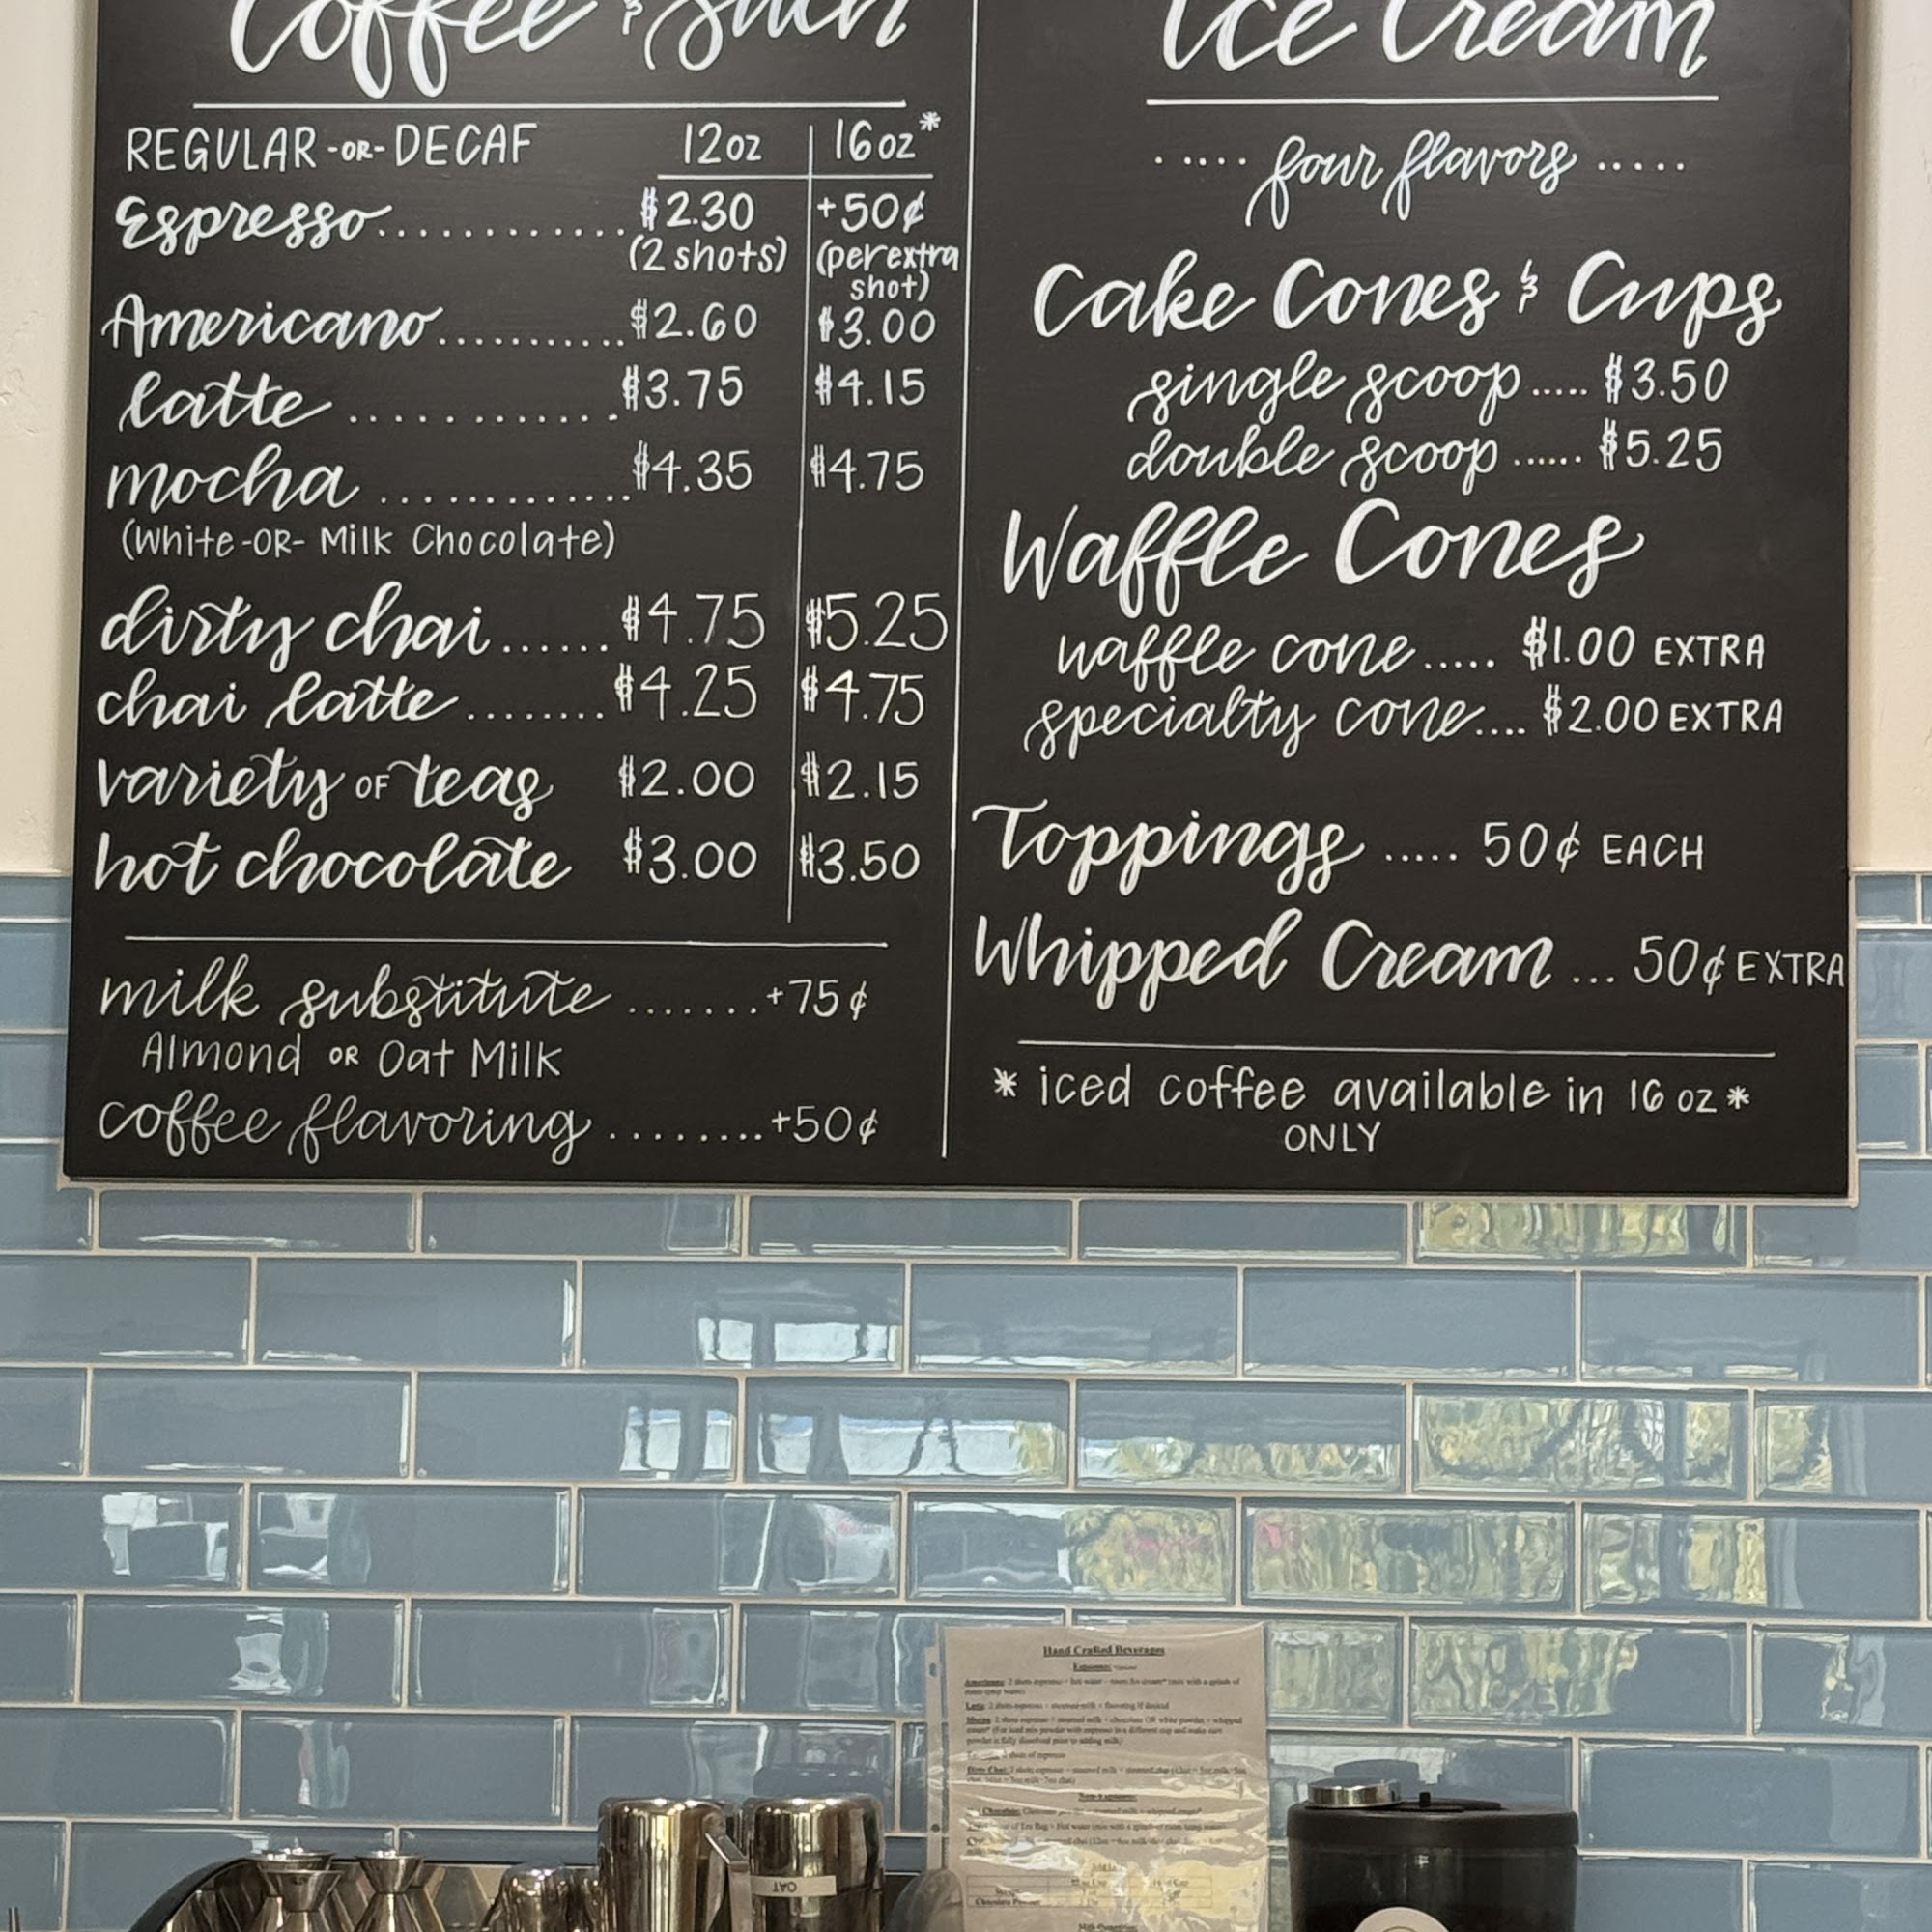 Coffee & Such
REGULAR -OR- DECAF 12oz 16oz*
Espresso............$2.30 +50¢
(2 shots) (per extra
shot)
Americano...........$2.60 $3.00
latte.............$3.75 $4.15
mocha.............$4.35 $4.75
(White -OR- Milk Chocolate)
dirty chai......$4.75 $5.25
chai latte........$4.25 $4.75
variety OF teas $2.00 $2.15
hot chocolate $3.00 $3.50
milk substitute.......+75¢
Almond OR Oat Milk
coffee flavoring........+50¢
Ice Cream
.....four flavors.....
Cake Cones & Cups
single scoop.....$3.50
double scoop......$5.25
Waffle Cones
waffle cone.....$1.00 EXTRA
specialty cone....$2.00 EXTRA
Toppings.....50¢ EACH
Whipped Cream...50¢ EXTRA
* iced coffee available in 16 oz *
ONLY
Hand Crafted Beverages
Americano: 2 shots espresso
Latte: 2 shots espresso + steamed milk + flavoring if desired
OAT